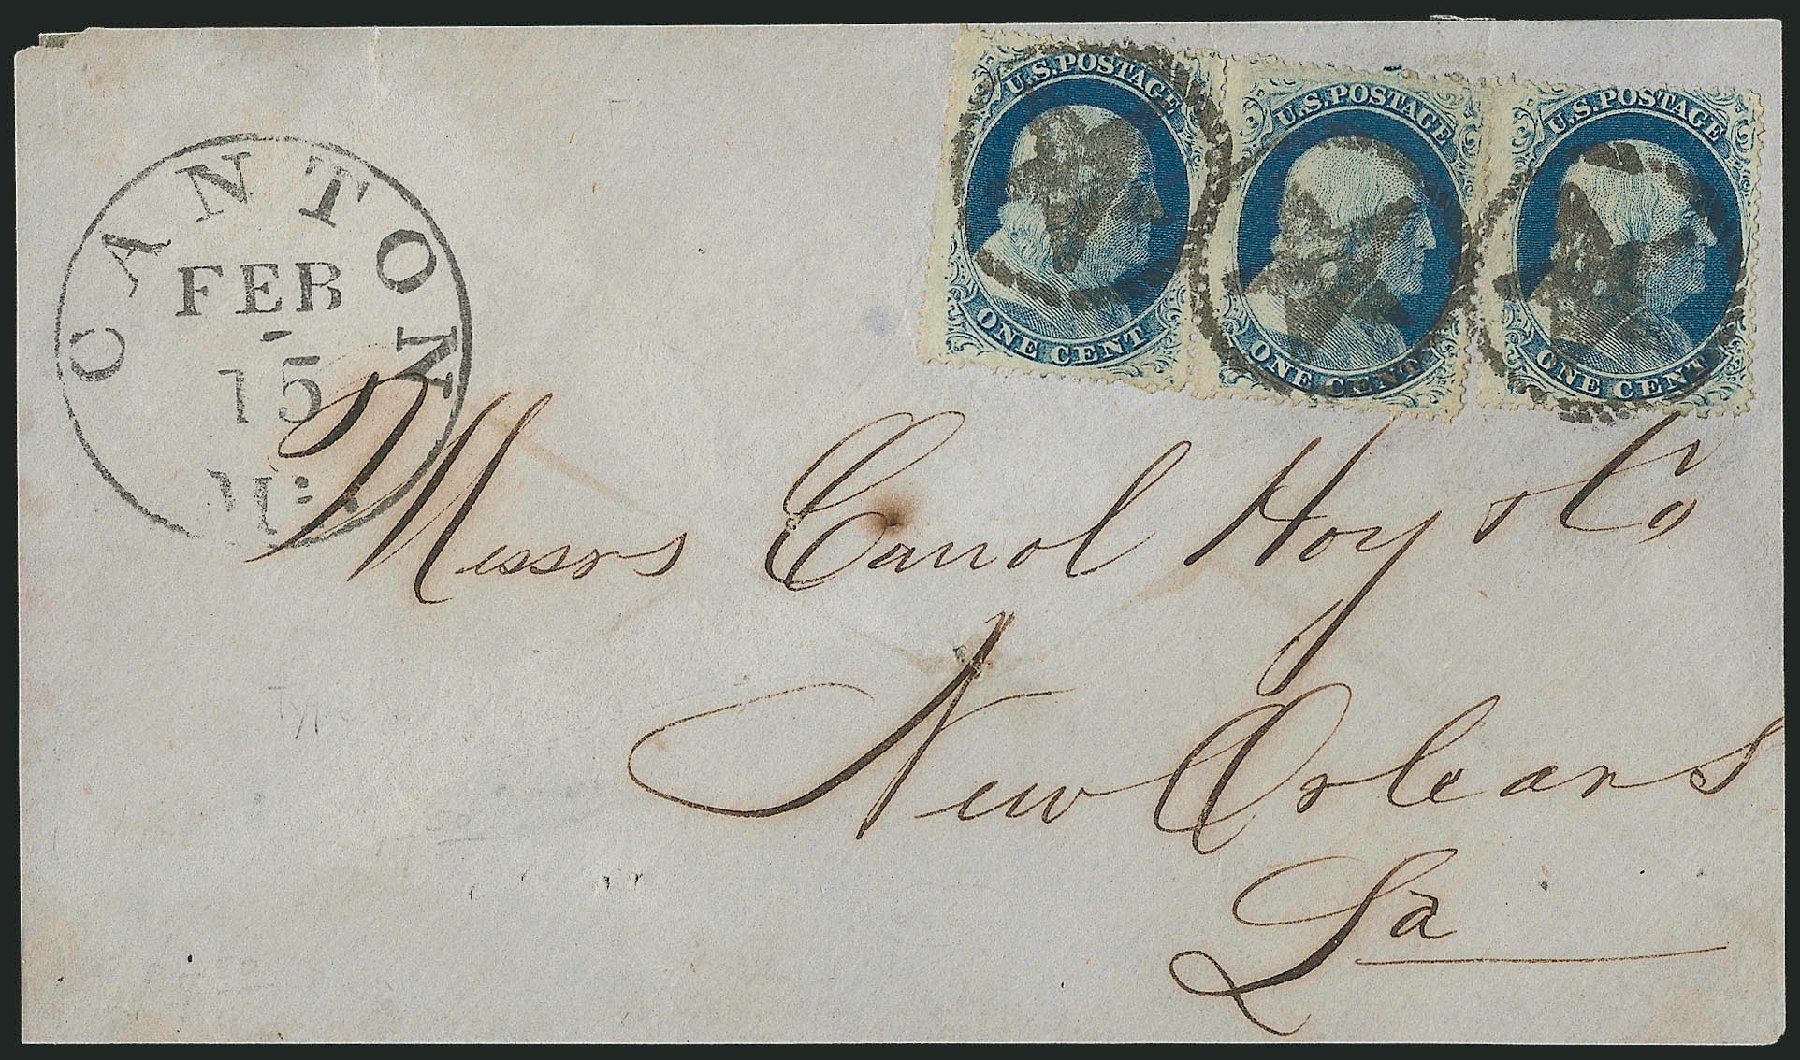 CANTON
FEB
15
Mi:
U.S. POSTAGE
ONE CENT
U.S. POSTAGE
ONE CENT
U.S. POSTAGE
ONE CENT
Messrs Carrol Hoy & Co
New Orleans
La